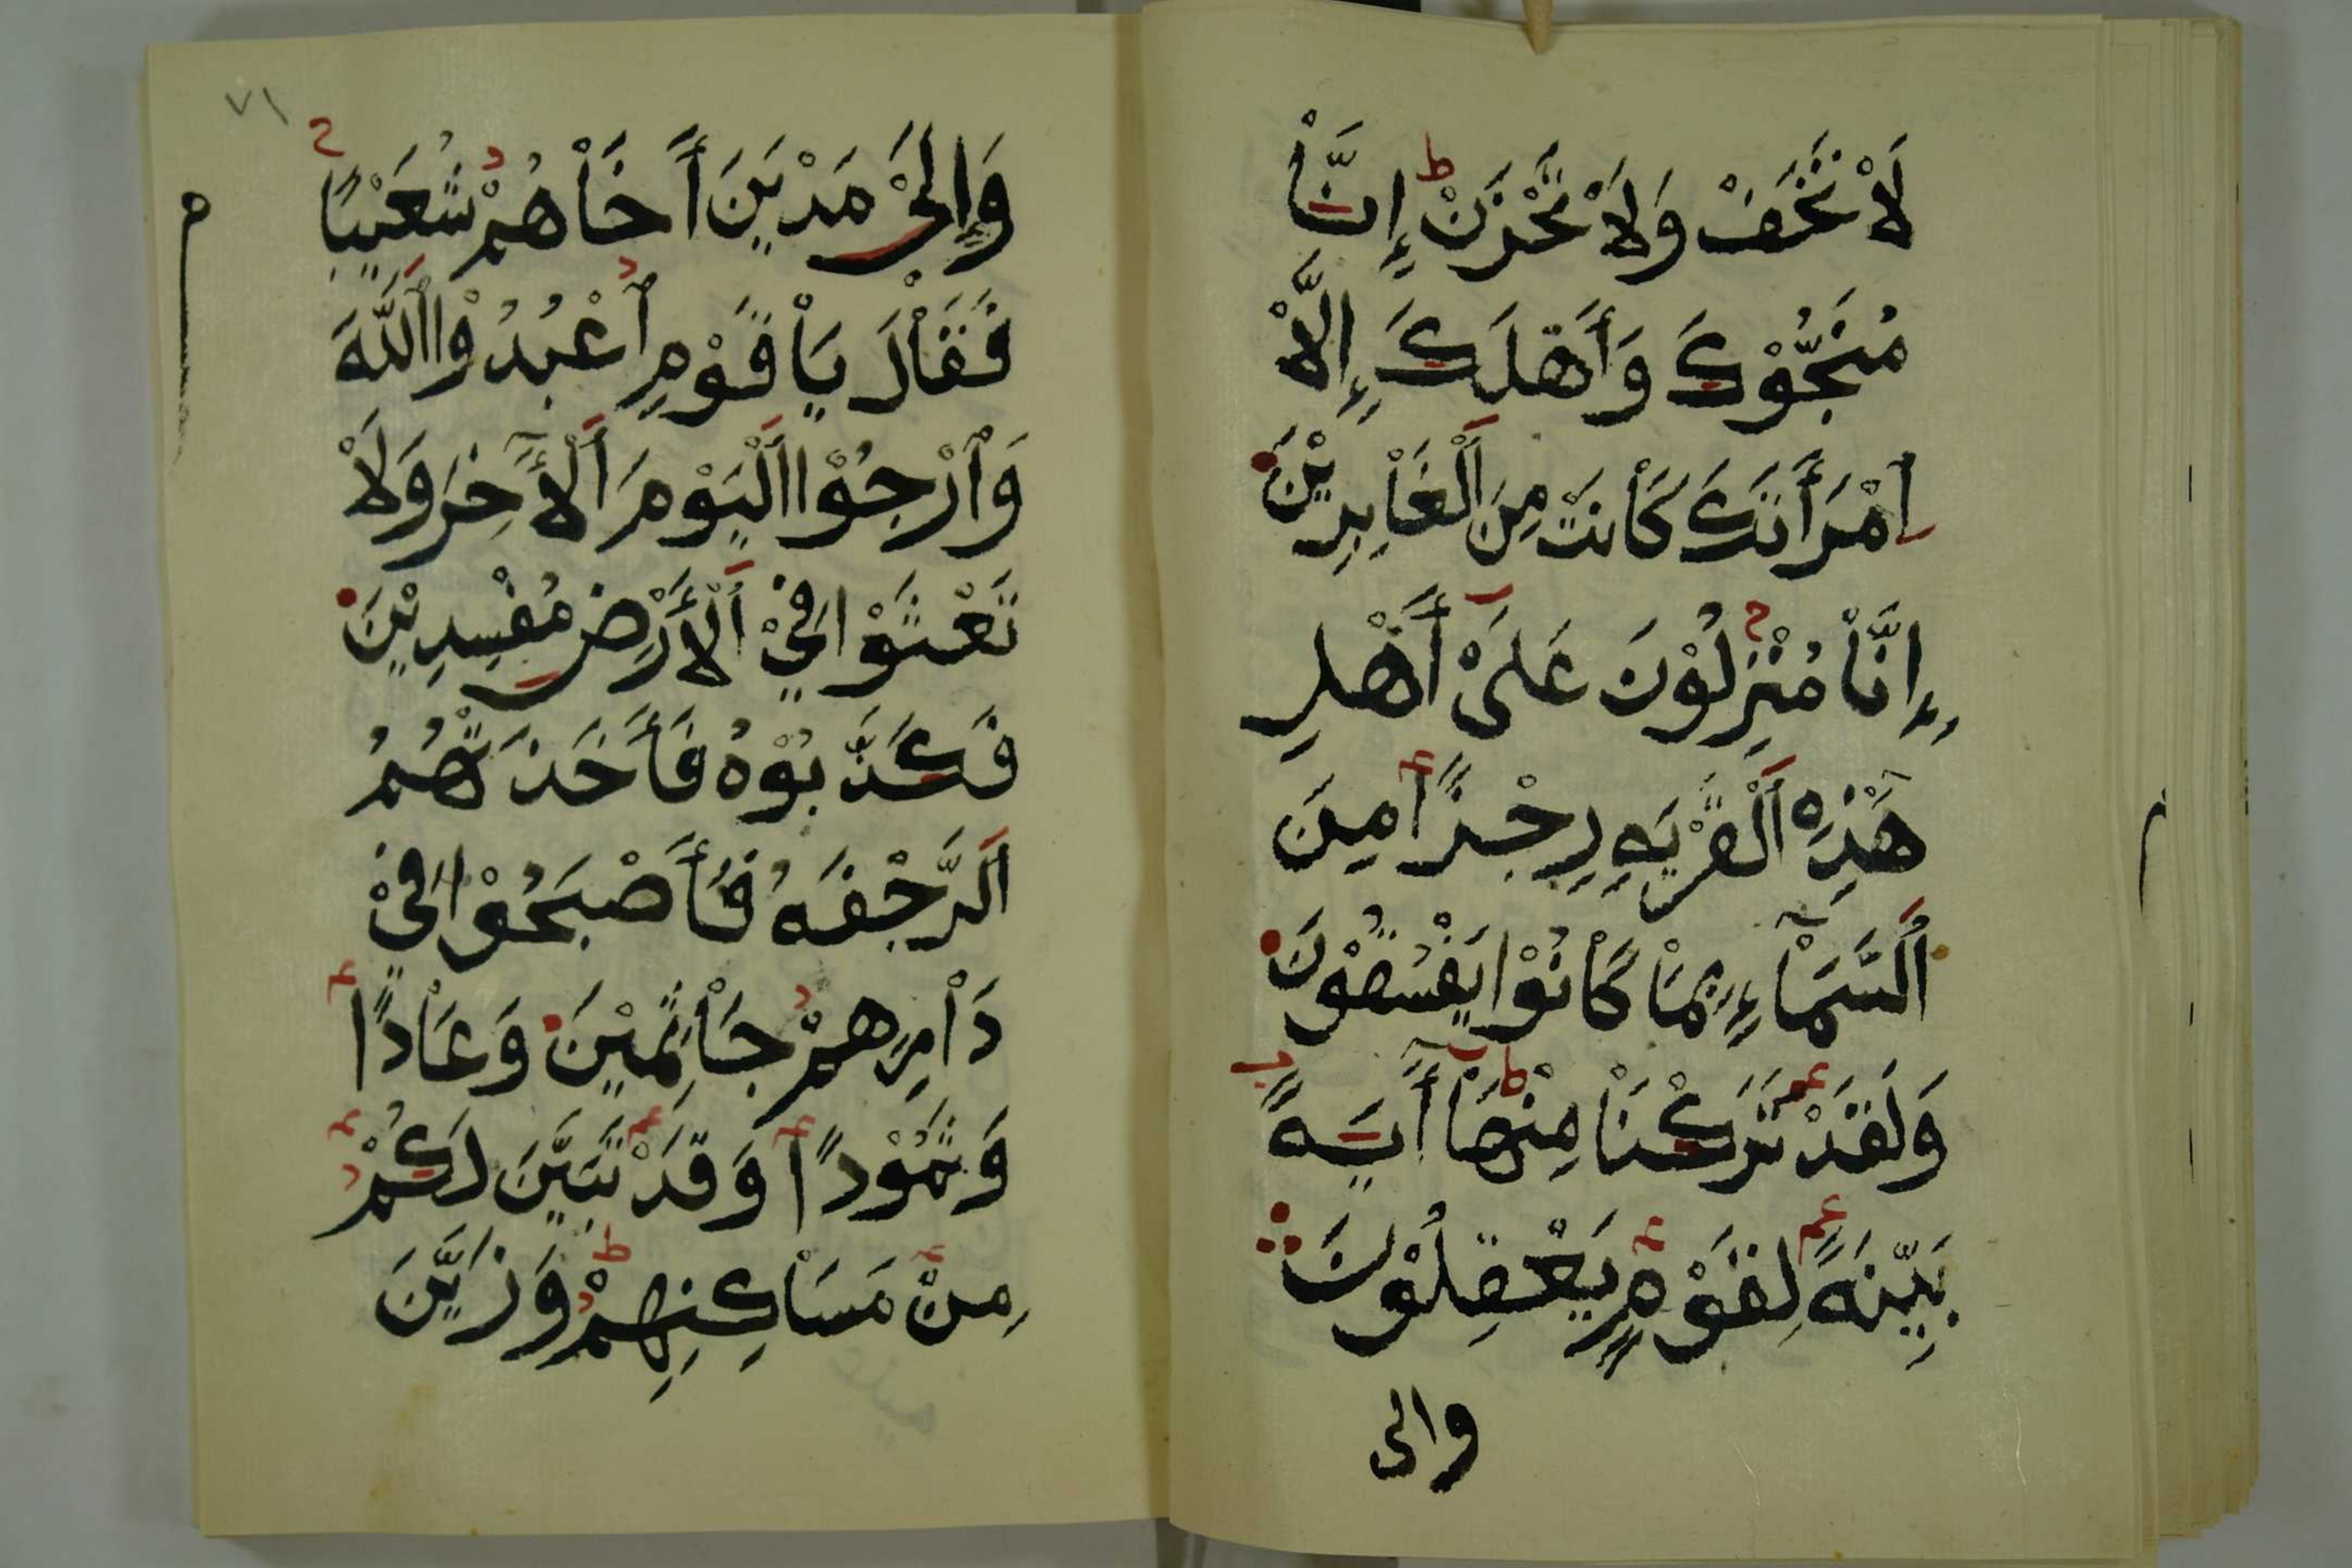 لَاْ تَخَفْ وَلَاْ تَحْزَنْ إِنَّاْ
مُنَجُّوْكَ وَأَهْلَكَ إِلَّاْ
اِمْرَأَتَكَ كَاْنَتْ مِنَ اَلْغَاْبِرِيْنَ
إِنَّاْ مُنْزِلُوْنَ عَلَىْ أَهْلِ
هَٰذِهِ اَلْقَرْيَةِ رِجْزًا مِنَ
اَلسَّمَاْءِ بِمَاْ كَاْنُوْا يَفْسُقُوْنَ
وَلَقَدْ تَرَكْنَاْ مِنْهَاْ أٓيَةً
بَيِّنَةً لِقَوْمٍ يَعْقِلُوْنَ
والى
٧١
وَإِلَىْ مَدْيَنَ أَخَاْهُمْ شُعَيْبًا
فَقَاْلَ يَاْ قَوْمِ اُعْبُدُوْا اَللَّهَ
وَاْرْجُوْا اَلْيَوْمَ اَلْأٓخِرَ وَلَاْ
تَعْثَوْا فِيْ اَلْأَرْضِ مُفْسِدِيْنَ
فَكَذَّبُوْهُ فَأَخَذَتْهُمُ
اَلرَّجْفَةُ فَأَصْبَحُوْا فِيْ
دَاْرِهِمْ جَاْثِمِيْنَ وَعَاْدًا
وَثَمُوْدًا وَقَدْ تَبَيَّنَ لَكُمْ
مِنْ مَسَاْكِنِهِمْ وَزَيَّنَ